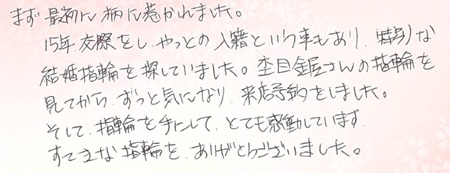 まず最初に柄に惹かれました。
15年交際をし、やっとの入籍という事もあり、特別な
結婚指輪を探していました。杢目金屋さんの指輪を
見てから、ずっと気になり、来店予約をしました。
そして、指輪を手にして、とても感動しています。
すてきな指輪を、ありがとうございました。